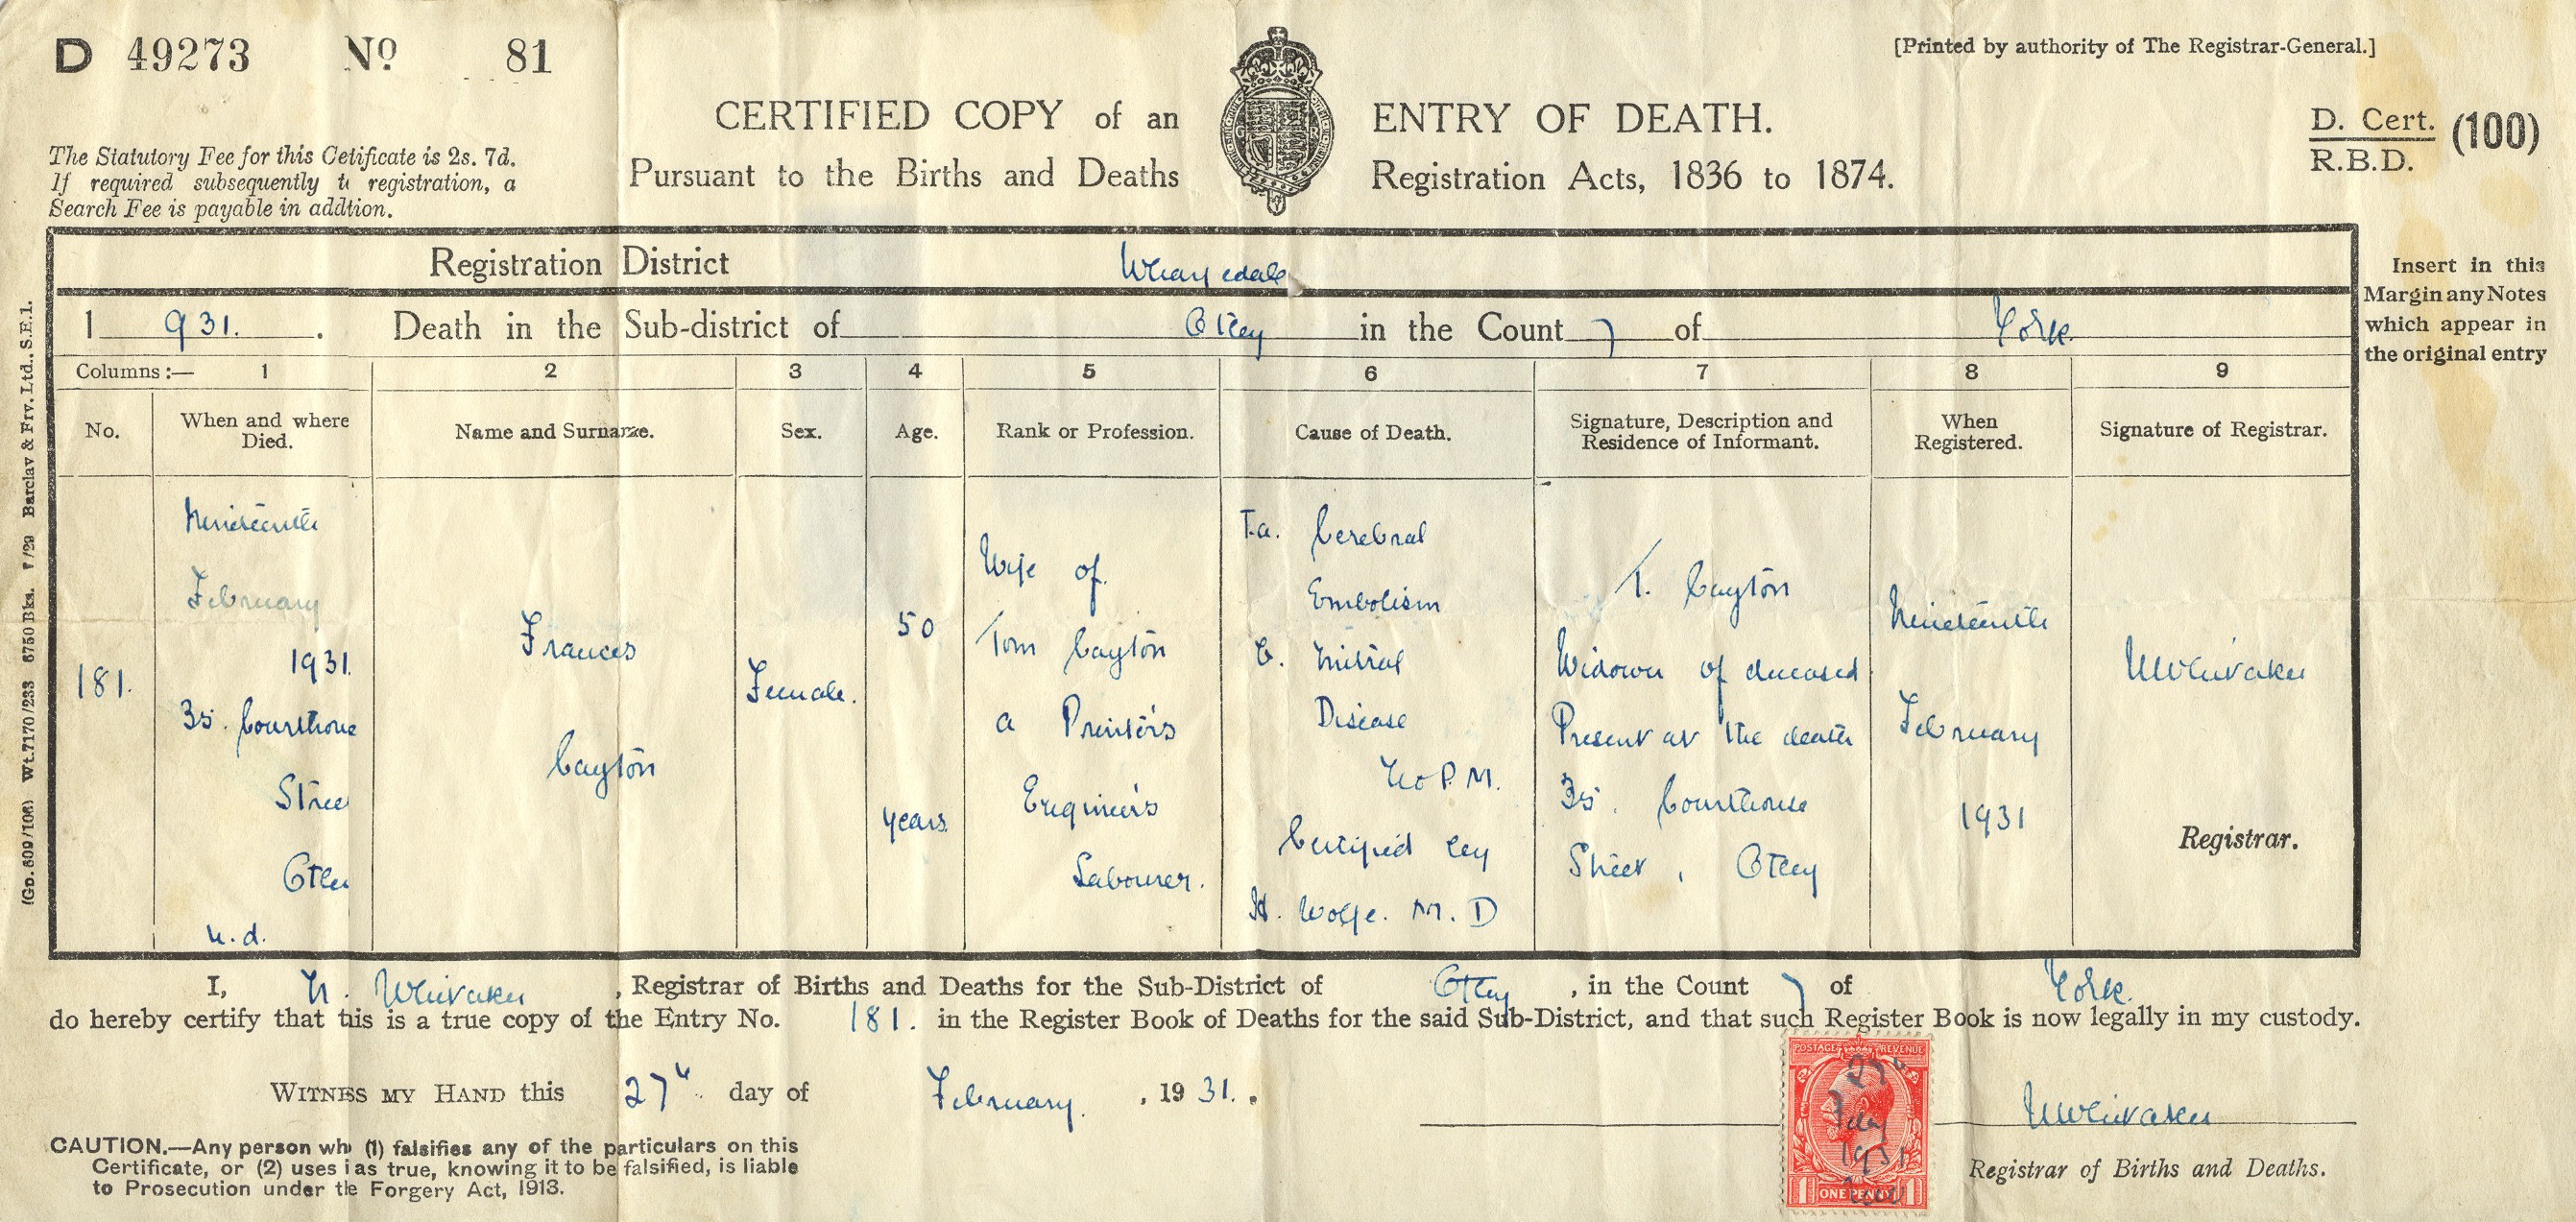 D 49273 No 81
[Printed by authority of The Registrar-General.]
CERTIFIED COPY of an ENTRY OF DEATH.
D. Cert. (100)
R.B.D.
The Statutory Fee for this Cetificate is 2s. 7d.
If required subsequently t registration, a
Search Fee is payable in addtion.
Pursuant to the Births and Deaths Registration Acts, 1836 to 1874.
Registration District Wharfedale
1931. Death in the Sub-district of Otley in the County of York
Insert in this
Margin any Notes
which appear in
the original entry
Columns :— 1 2 3 4 5 6 7 8 9
No.
When and where
Died.
Name and Surname.
Sex.
Age.
Rank or Profession.
Cause of Death.
Signature, Description and
Residence of Informant.
When
Registered.
Signature of Registrar.
181.
Nineteenth
February
1931.
35. Courthouse
Stree
Otle
u.d.
Frances
Cayton
Female.
50
years
Wife of
Tom Cayton
a Printer's
Engineer's
Labourer.
I.a. Cerebral
Embolism
b. Mitral
Disease
No P.M.
Certified by
H. Wolfe. M.D
T. Cayton
Widower of deceased
Present at the death
35. Courthouse
Street, Otley
Nineteenth
February
1931
N Whitaker
Registrar.
I, N. Whitaker, Registrar of Births and Deaths for the Sub-District of Otley, in the County of York.
do hereby certify that this is a true copy of the Entry No. 181. in the Register Book of Deaths for the said Sub-District, and that such Register Book is now legally in my custody.
WITNESS MY HAND this 27th day of February, 1931.
N Whitaker
Registrar of Births and Deaths.
CAUTION.—Any person wh (1) falsifies any of the particulars on this
Certificate, or (2) uses i as true, knowing it to be falsified, is liable
to Prosecution under the Forgery Act, 1913.
POSTAGE REVENUE
27th
Feby
1931
1 ONE PENNY 1
(Gp. 809/106) Wt.7170/233 6750 Bks. 7/29 Barclay & Fry, Ltd., S.E.1.